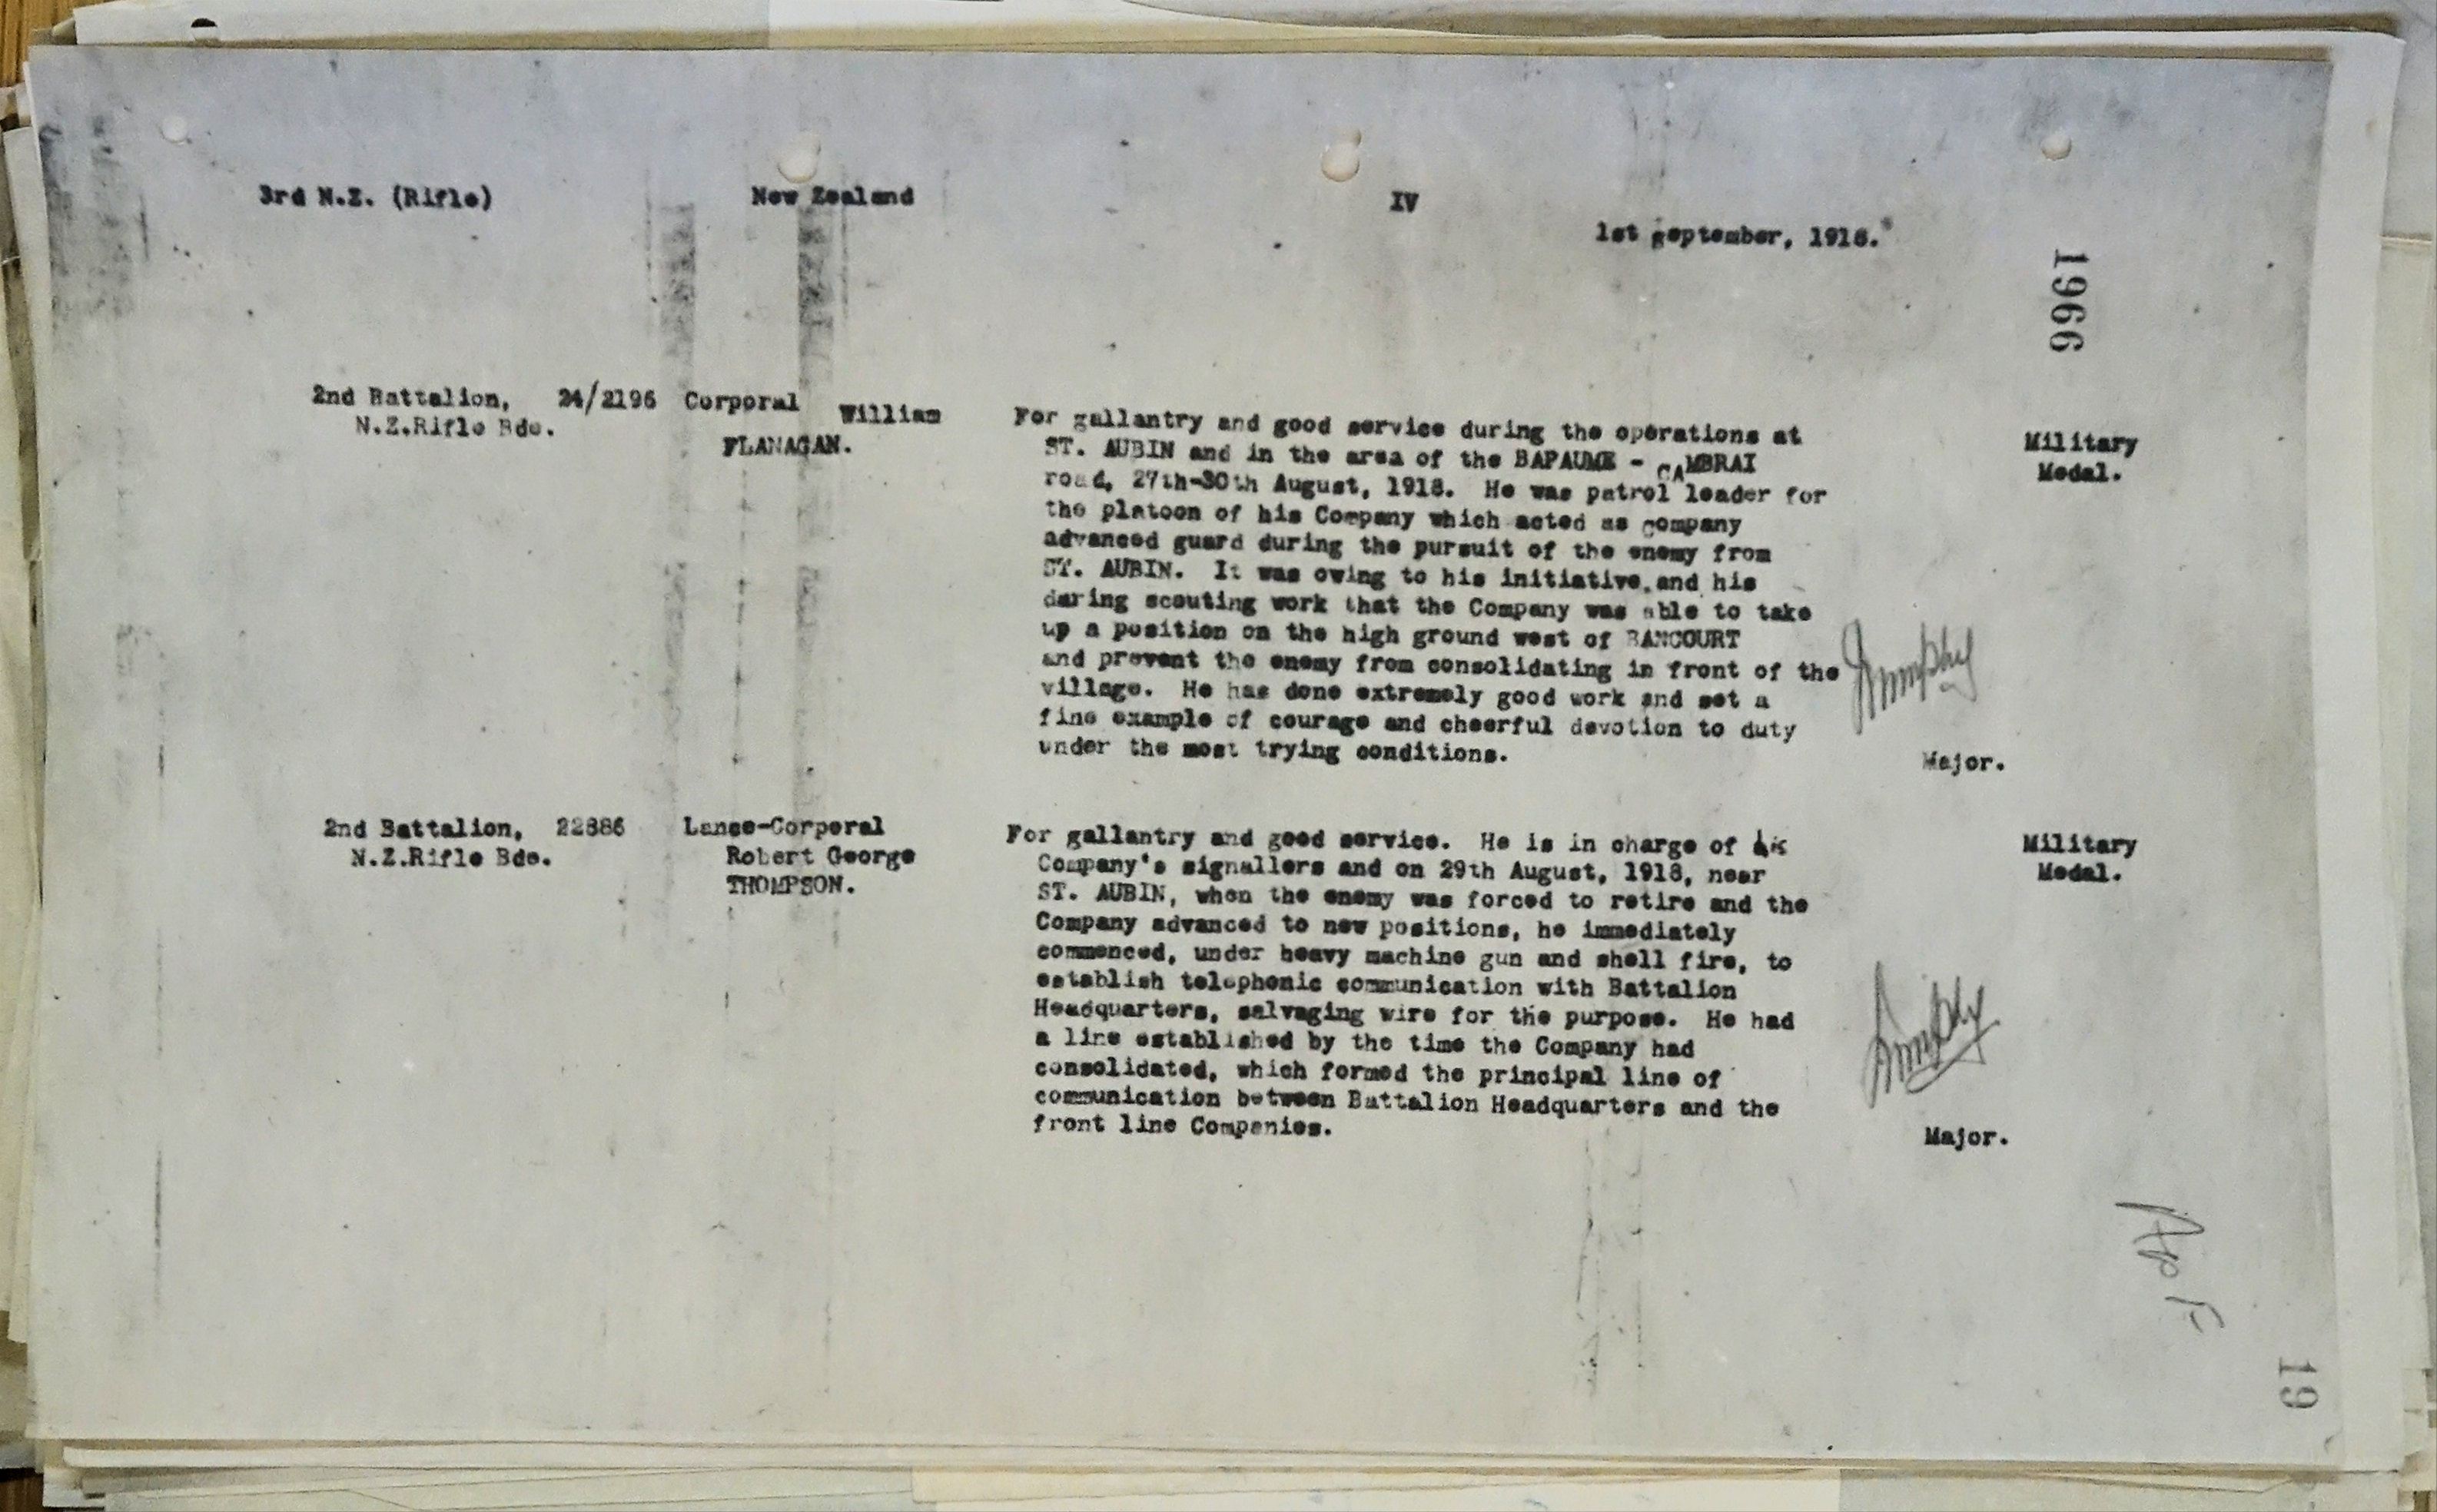 3rd N.Z. (Rifle) New Zealand IV
1st September, 1918.
1966
2nd Battalion, 24/2196 Corporal William
N.Z.Rifle Bde. FLANAGAN.
For gallantry and good service during the operations at
ST. AUBIN and in the area of the BAPAUME - CAMBRAI
road, 27th-30th August, 1918. He was patrol leader for
the platoon of his Company which acted as company
advanced guard during the pursuit of the enemy from
ST. AUBIN. It was owing to his initiative,and his
daring scouting work that the Company was able to take
up a position on the high ground west of BANCOURT
and prevent the enemy from consolidating in front of the
village. He has done extremely good work and set a
fine example of courage and cheerful devotion to duty
under the most trying conditions.
Major.
Military
Medal.
2nd Battalion, 22886 Lance-Corporal
N.Z.Rifle Bde. Robert George
THOMPSON.
For gallantry and good service. He is in charge of
Company's signallers and on 29th August, 1918, near
ST. AUBIN, when the enemy was forced to retire and the
Company advanced to new positions, he immediately
commenced, under heavy machine gun and shell fire, to
establish telephonic communication with Battalion
Headquarters, salvaging wire for the purpose. He had
a line established by the time the Company had
consolidated, which formed the principal line of
communication between Battalion Headquarters and the
front line Companies.
Major.
Military
Medal.
Ap F
19